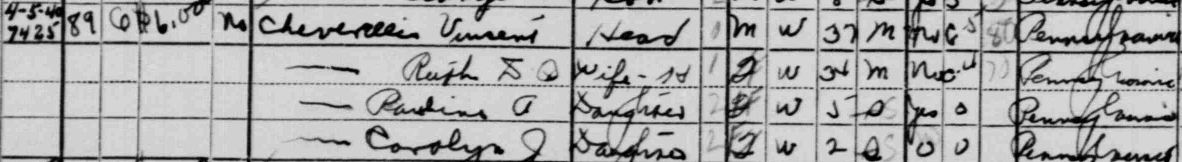 4-5-40 89 6 R 6.00 No Vincent Head 1 M W 37 M No C-5 80 Pennsylvania
7425
— Ruth D Wife-H 1 F W 34 M No 70 Pennsylvania
— Pauline A Daughter 2 F W 5 S yes 0 Pennsylvania
— Carolyn J Daughter 2 F W 2 S 0 0 Pennsylvania